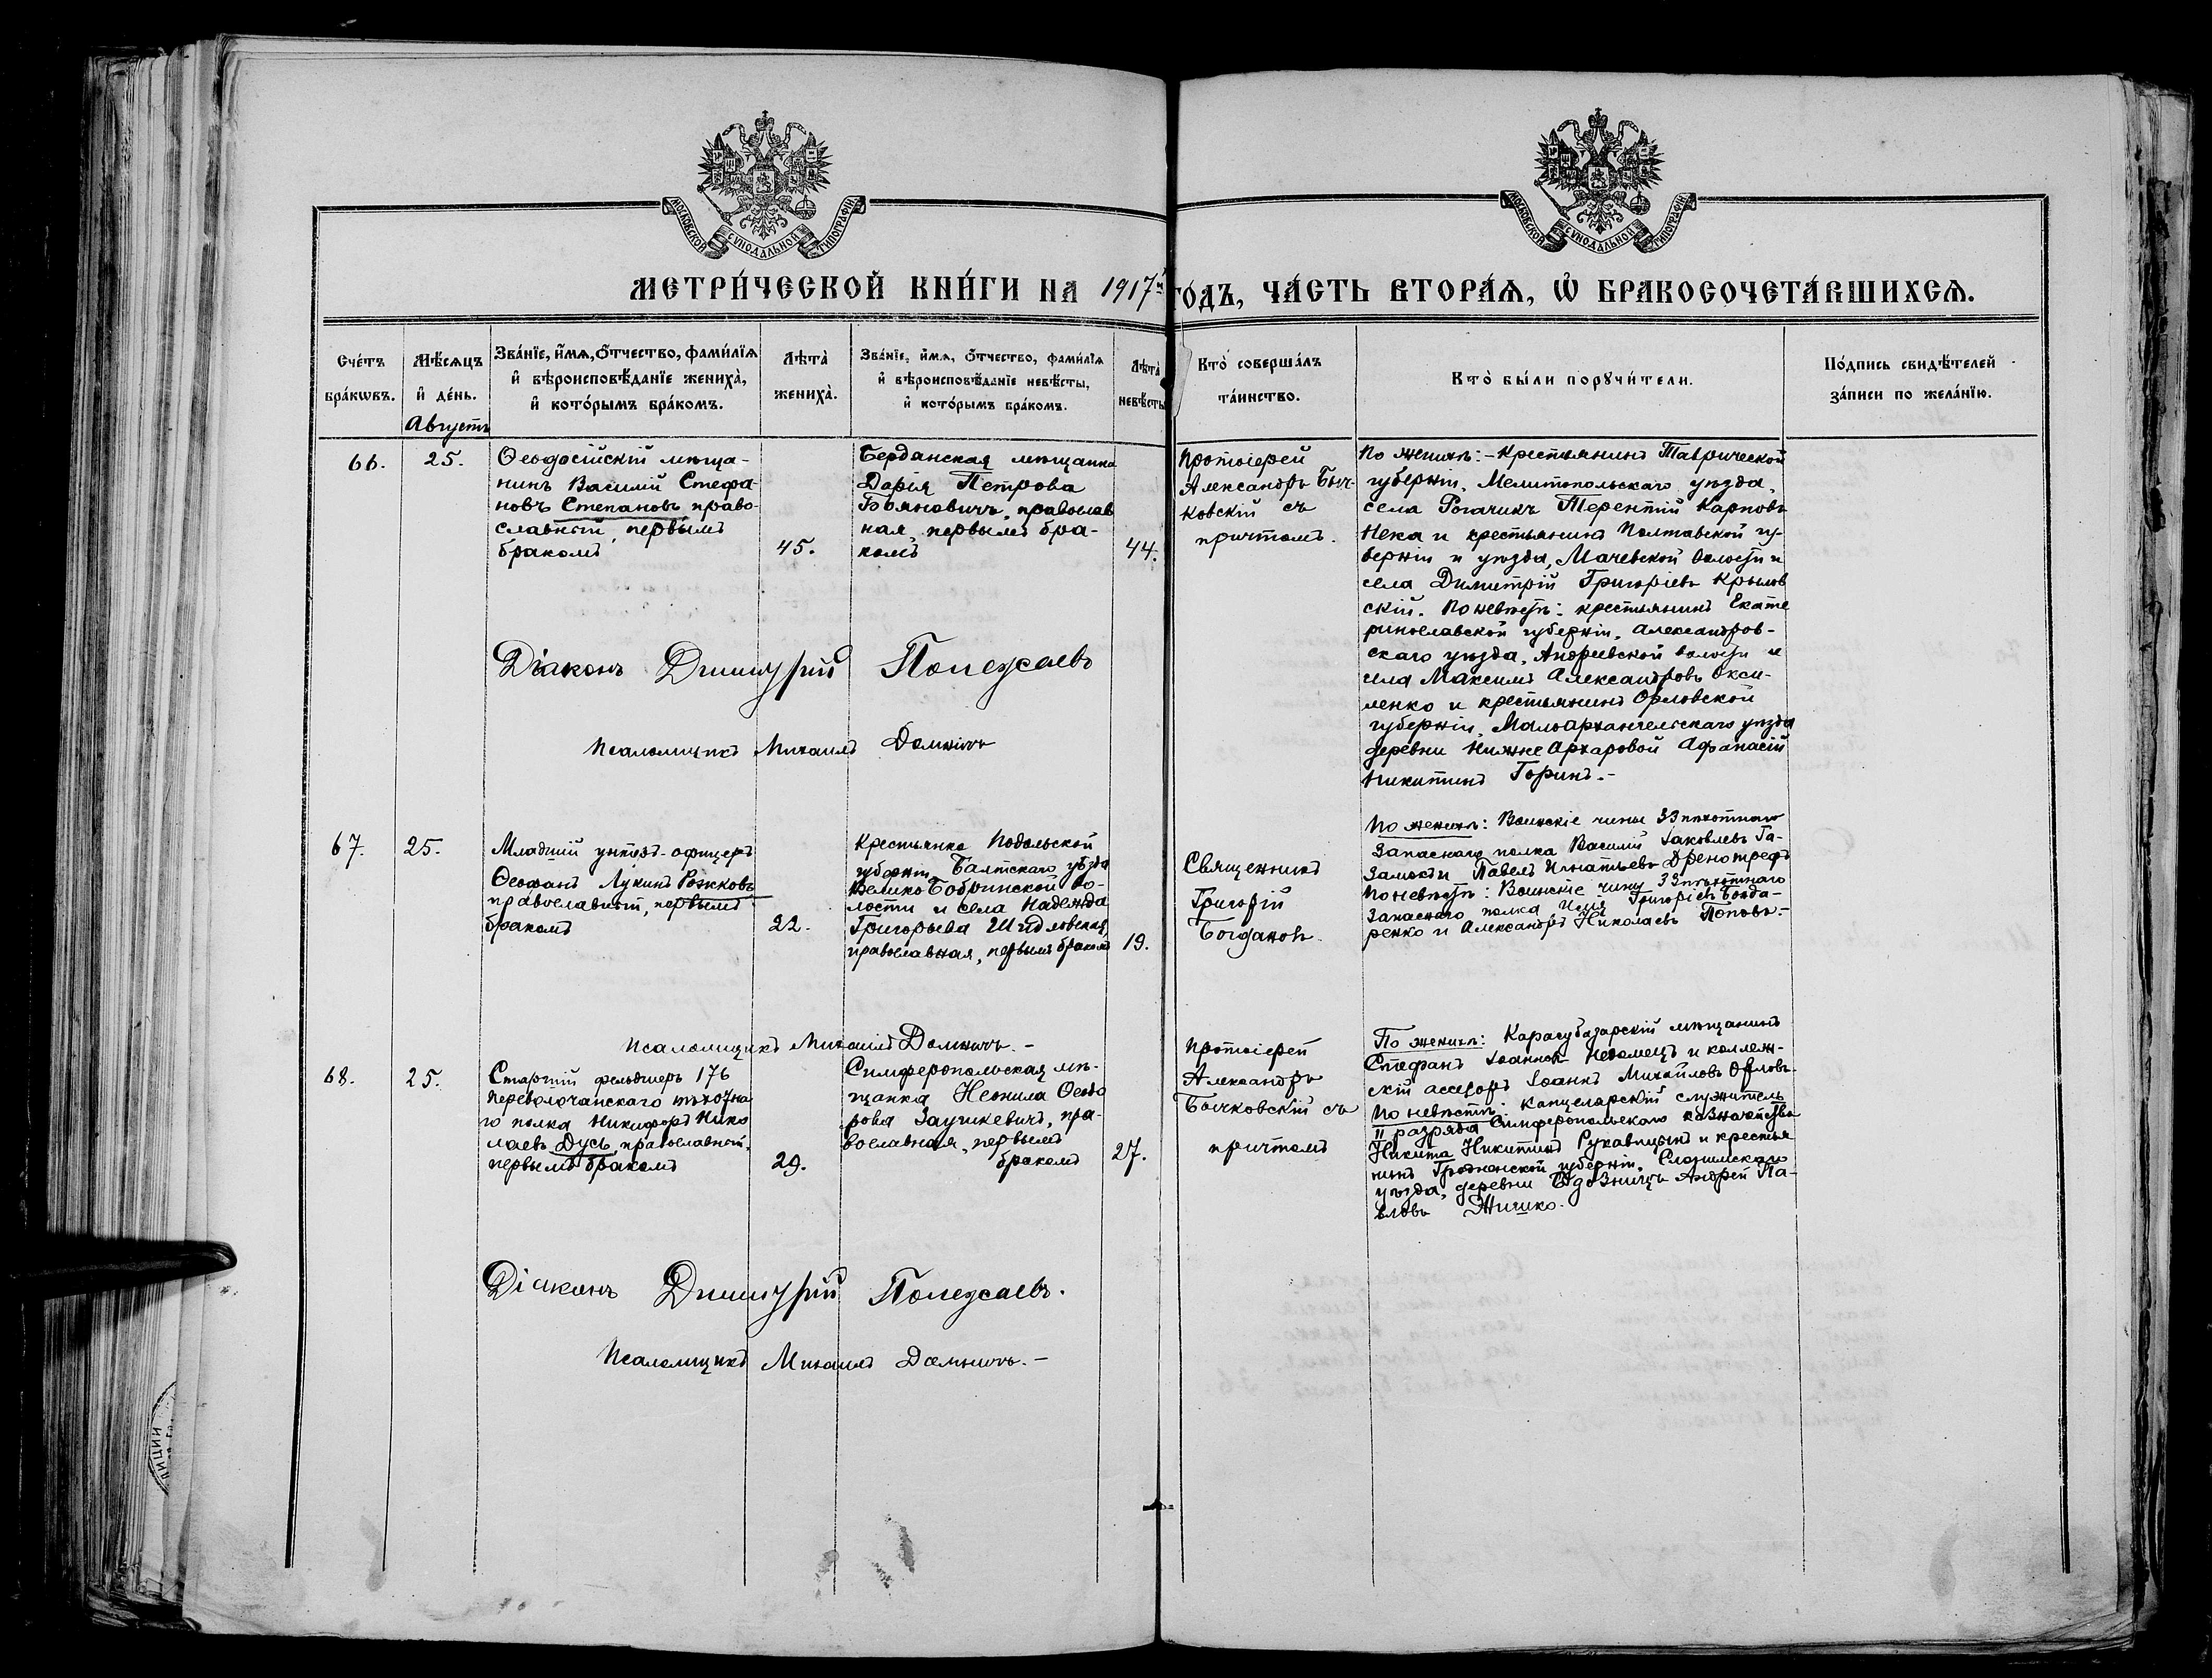 МОСКОВСКОЙ СѴНОДАЛЬНОЙ ТИПОГРАФІИ
МОСКОВСКОЙ СѴНОДАЛЬНОЙ ТИПОГРАФІИ
МЕТРИ́ЧЕСКОЙ КНИ́ГИ НА 1917й ГОДЪ, ЧА́СТЬ ВТОРА́Ѧ, Ѽ БРАКОСОЧЕТА́ВШИХСѦ.
Сче́тъ
бра́кѡвъ.
Мѣ́сѧцъ
и҆ де́нь.
Августъ
Зва́нїе, и҆́мѧ, ѻ҆́тчество, фами́лїѧ
и҆ вѣроисповѣ́данїе жениха̀,
и҆ кото́рымъ бра́комъ.
Лѣта̀
жениха̀.
Зва́нїе, и҆́мѧ, ѻ҆́тчество, фами́лїѧ
и҆ вѣроисповѣ́данїе невѣ́сты,
и҆ кото́рымъ бра́комъ.
Лѣта̀
невѣ́сты
Кто̀ соверша́лъ
та́инство.
Кто̀ бы́ли порꙋчи́тели.
По́дпись свидѣ́телей
за́писи по жела́нїю.
66.
25.
Ѳеодосійскій мѣща-
нинъ Василій Стефа-
новъ Степановъ право-
славный, первымъ
бракомъ
45.
Бердянская мѣщанка
Дарія Петрова
Бояновичъ, православ
ная, первымъ бра-
комъ
44.
Протоіерей
Александръ Быч-
ковскій съ
причтомъ.
По женихѣ: - Крестьянинъ Таврической
губерніи, Мелитопольскаго уѣзда,
села Рогачикъ Терентій Карповъ
Нека и крестьянинъ Полтавской гу-
берніи и уѣзда, Мачевской волости и
села Димитрій Григоріевъ Крылов
скій. По невѣстѣ: крестьянинъ Екате
ринославской губерніи, Александров-
скаго уѣзда, Андреевской волости и
села Максимъ Александровъ Окси-
ленко и крестьянинъ Орловской
губерніи, Малоархангельскаго уѣзда
деревни Нижне Архаровой Афанасій
Никитинъ Горинъ. -
Діаконъ Димитрій Полежаевъ
Псаломщикъ Михаилъ Домничъ
67.
25.
Младшій унтеръ-офицеръ
Ѳеофанъ Лукинъ Рожковъ
православный, первымъ
бракомъ
22.
Крестьянка Подольской
губерніи Балтскаго уѣзда
Велико Бобринской во-
лости и села Надежда
Григорьева Шидловская,
православная, первымъ бракомъ
19.
Священникъ
Григорій
Богдановъ.
По женихѣ: Воинскіе чины 33 пѣхотнаго
Запаснаго полка Василій Іаковлевъ Га-
По невѣстѣ: Воинскіе чины 33 пѣхотнаго
Запаснаго полка Илія Григоріевъ Бонда-
ренко и Александръ Николаевъ Поповъ. -
Псаломщикъ Михаилъ Домничъ. -
68.
25.
Старшій фельдшеръ 176
Переволочанскаго пѣхотна
го полка Никифоръ Нико
лаевъ Дусь, православный,
первымъ бракомъ
29.
Симферопольская мѣ-
щанка Неонила Ѳеодо
рова Заушкевичъ, пра-
вославная, первымъ
бракомъ
27.
Протоіерей
Александръ
Бычковскій съ
причтомъ
По женихѣ: Карасубазарскій мѣщанинъ
Стефанъ Іоанновъ Недомецъ и коллеж-
скій ассесоръ Іоаннъ Михайловъ Орловъ.
По невѣстѣ: Канцелярскій служитель
II разряда Симферопольскаго казначейства
Никита Никитинъ Рукавицынъ и крестья
нинъ Гродненской губерніи, Слонимскаго
уѣзда, деревни Андрей Па-
вловъ Жишко.
Діаконъ Димитрій Полежаевъ.
Псаломщикъ Михаилъ Домничъ. -